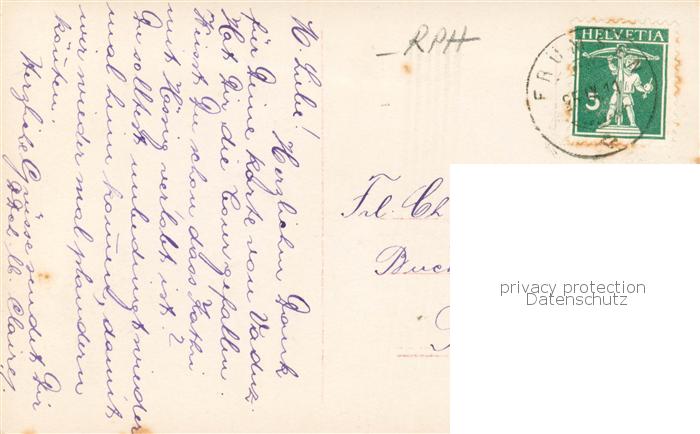 M. Liebe!
Herzlichen Dank
für Deine Karte von Vaduz.
Hat Dir die Tour gefallen.
Weist Du schon dass Kathri
mit König verlobt ist?
Du solltest unbedingt wieder
mal heim kommen, damit
wir wieder mal plaudern
können.
Herzliche Grüsse sendet Dir
Clairy.
RPH
HELVETIA
5
FRÜM
Frl. Ch
Buc
privacy protection
Datenschutz